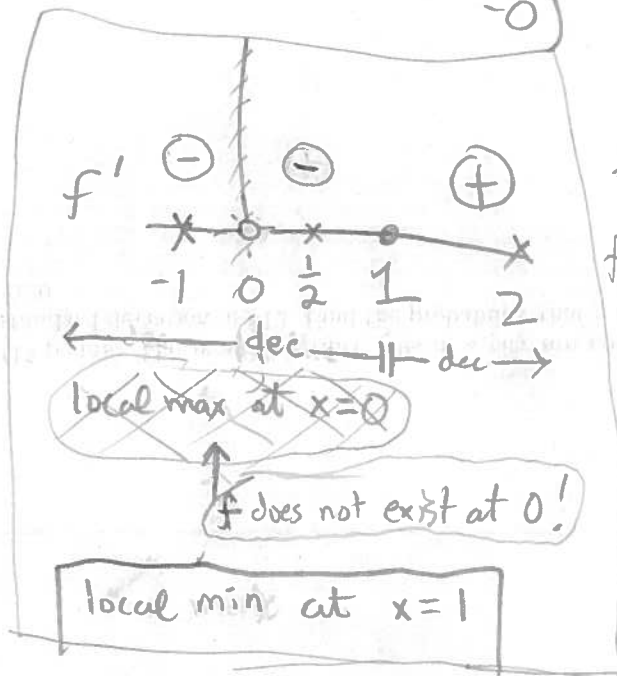 -0
f' ⊖ ⊖ ⊕
-1 0 1/2 1 2
dec dec
local max at x=0
f does not exist at 0!
local min at x=1